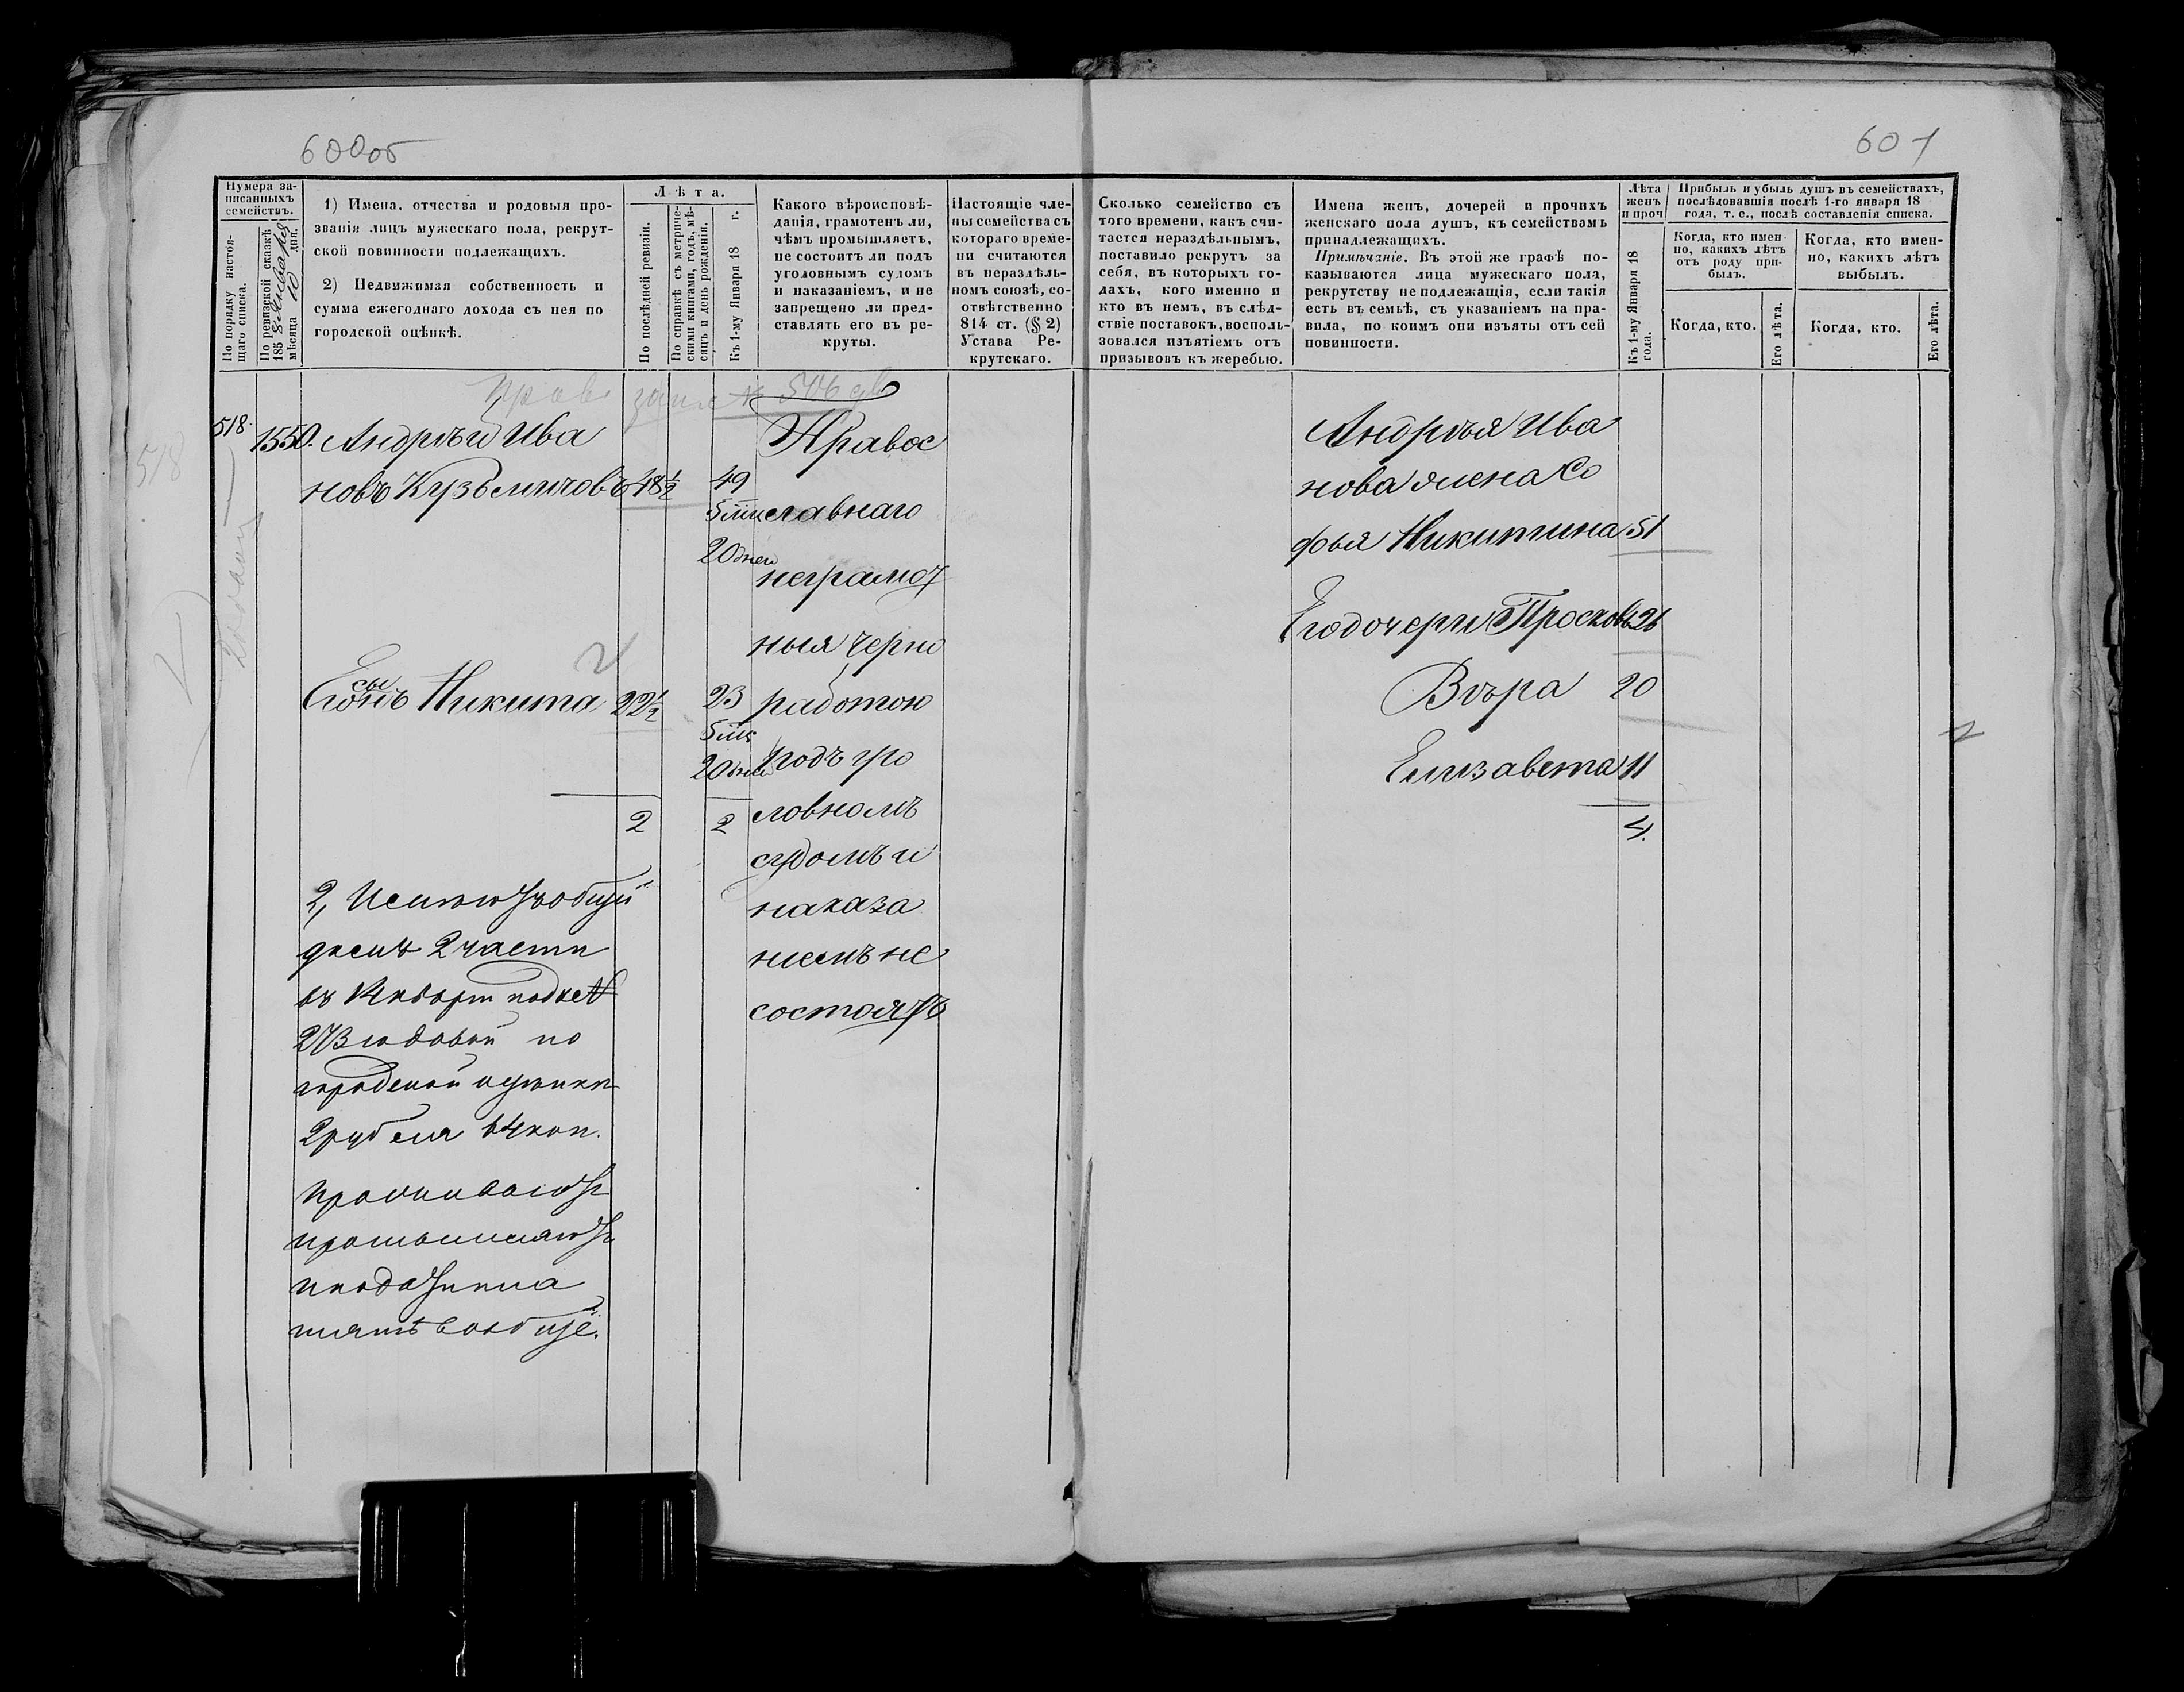 600об
601
Нумера за-
писанныхъ
семействъ.
По порядку настоя-
щаго списка.
По ревизской сказкѣ
185 8 января
мѣсяца 10 дня.
1) Имена, отчества и родовыя про-
званія лицъ мужескаго пола, рекрут-
ской повинности подлежащихъ.
2) Недвижимая собственность и
сумма ежегоднаго дохода съ нея по
городской оцѣнкѣ.
Лѣта.
По послѣдней ревизіи.
По справкѣ съ метриче-
скими книгами, годъ, мѣ-
сяцъ и день рожденія.
Къ 1-му Января 18 г.
Какого вѣроисповѣ-
данія, грамотенъ ли,
чѣмъ промышляетъ,
не состоитъ ли подъ
уголовнымъ судомъ
и наказаніемъ, и не
запрещено ли пред-
ставлять его въ ре-
круты.
Настоящіе чле-
ны семейства съ
котораго време-
ни считаются
въ нераздѣль-
номъ союзѣ, со-
отвѣтственно
814 ст. (§ 2)
Устава Ре-
крутскаго.
Сколько семейство съ
того времени, какъ счи-
тается нераздѣльнымъ,
поставило рекрутъ за
себя, въ которыхъ го-
дахъ, кого именно и
кто въ немъ, въ слѣд-
ствіе поставокъ, восполь-
зовался изъятіемъ отъ
призывовъ къ жеребью.
Имена женъ, дочерей и прочихъ
женскаго пола душъ, къ семействамъ
принадлежащихъ.
Примѣчаніе. Въ этой же графѣ по-
казываются лица мужескаго пола,
рекрутству не подлежащія, если такія
есть въ семьѣ, съ указаніемъ на пра-
вила, по коимъ они изъяты отъ сей
повинности.
Лѣта
женъ
и проч
Къ 1-му Января 18
года.
Прибыль и убыль душъ въ семействахъ,
послѣдовавшія послѣ 1-го января 18
года, т. е., послѣ составленія списка.
Когда, кто имен-
но, какихъ лѣтъ
отъ роду при-
былъ.
Когда, кто имен-
но, какихъ лѣтъ
выбылъ.
Когда, кто.
Его лѣта.
Когда, кто.
Его лѣта.
№ 506
518
518. 1550. Андрѣй Ива
новъ Кузьмичовъ 48½ 49
5 мц
20 дней
Его сынъ Никита 22½ 23
5 мц
20 дней
2 2
Правос
лавнаго
неграмот
ныя черно
работою
подъ уго
ловномъ
судомъ и
наказа
ніемъ не
состоятъ
2, Имѣютъ общій
домъ 2 части
въ 1 Кварт подъ №
по
городской оцѣнкѣ
2 рубля 64 коп.
Проживаютъ
промышляютъ
и подати пла
тятъ вообще.
Андрѣя Ива
нова жена Со
фья Никитина 51
Его дочери Просковь 26
Вѣра 20
Елизавета 11
4.